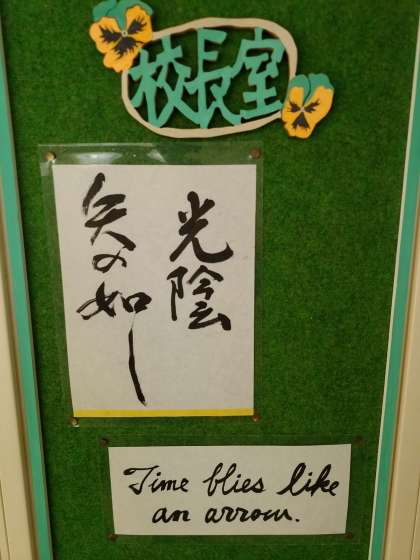 校長室
光陰
矢の如し
Time flies like
an arrow.